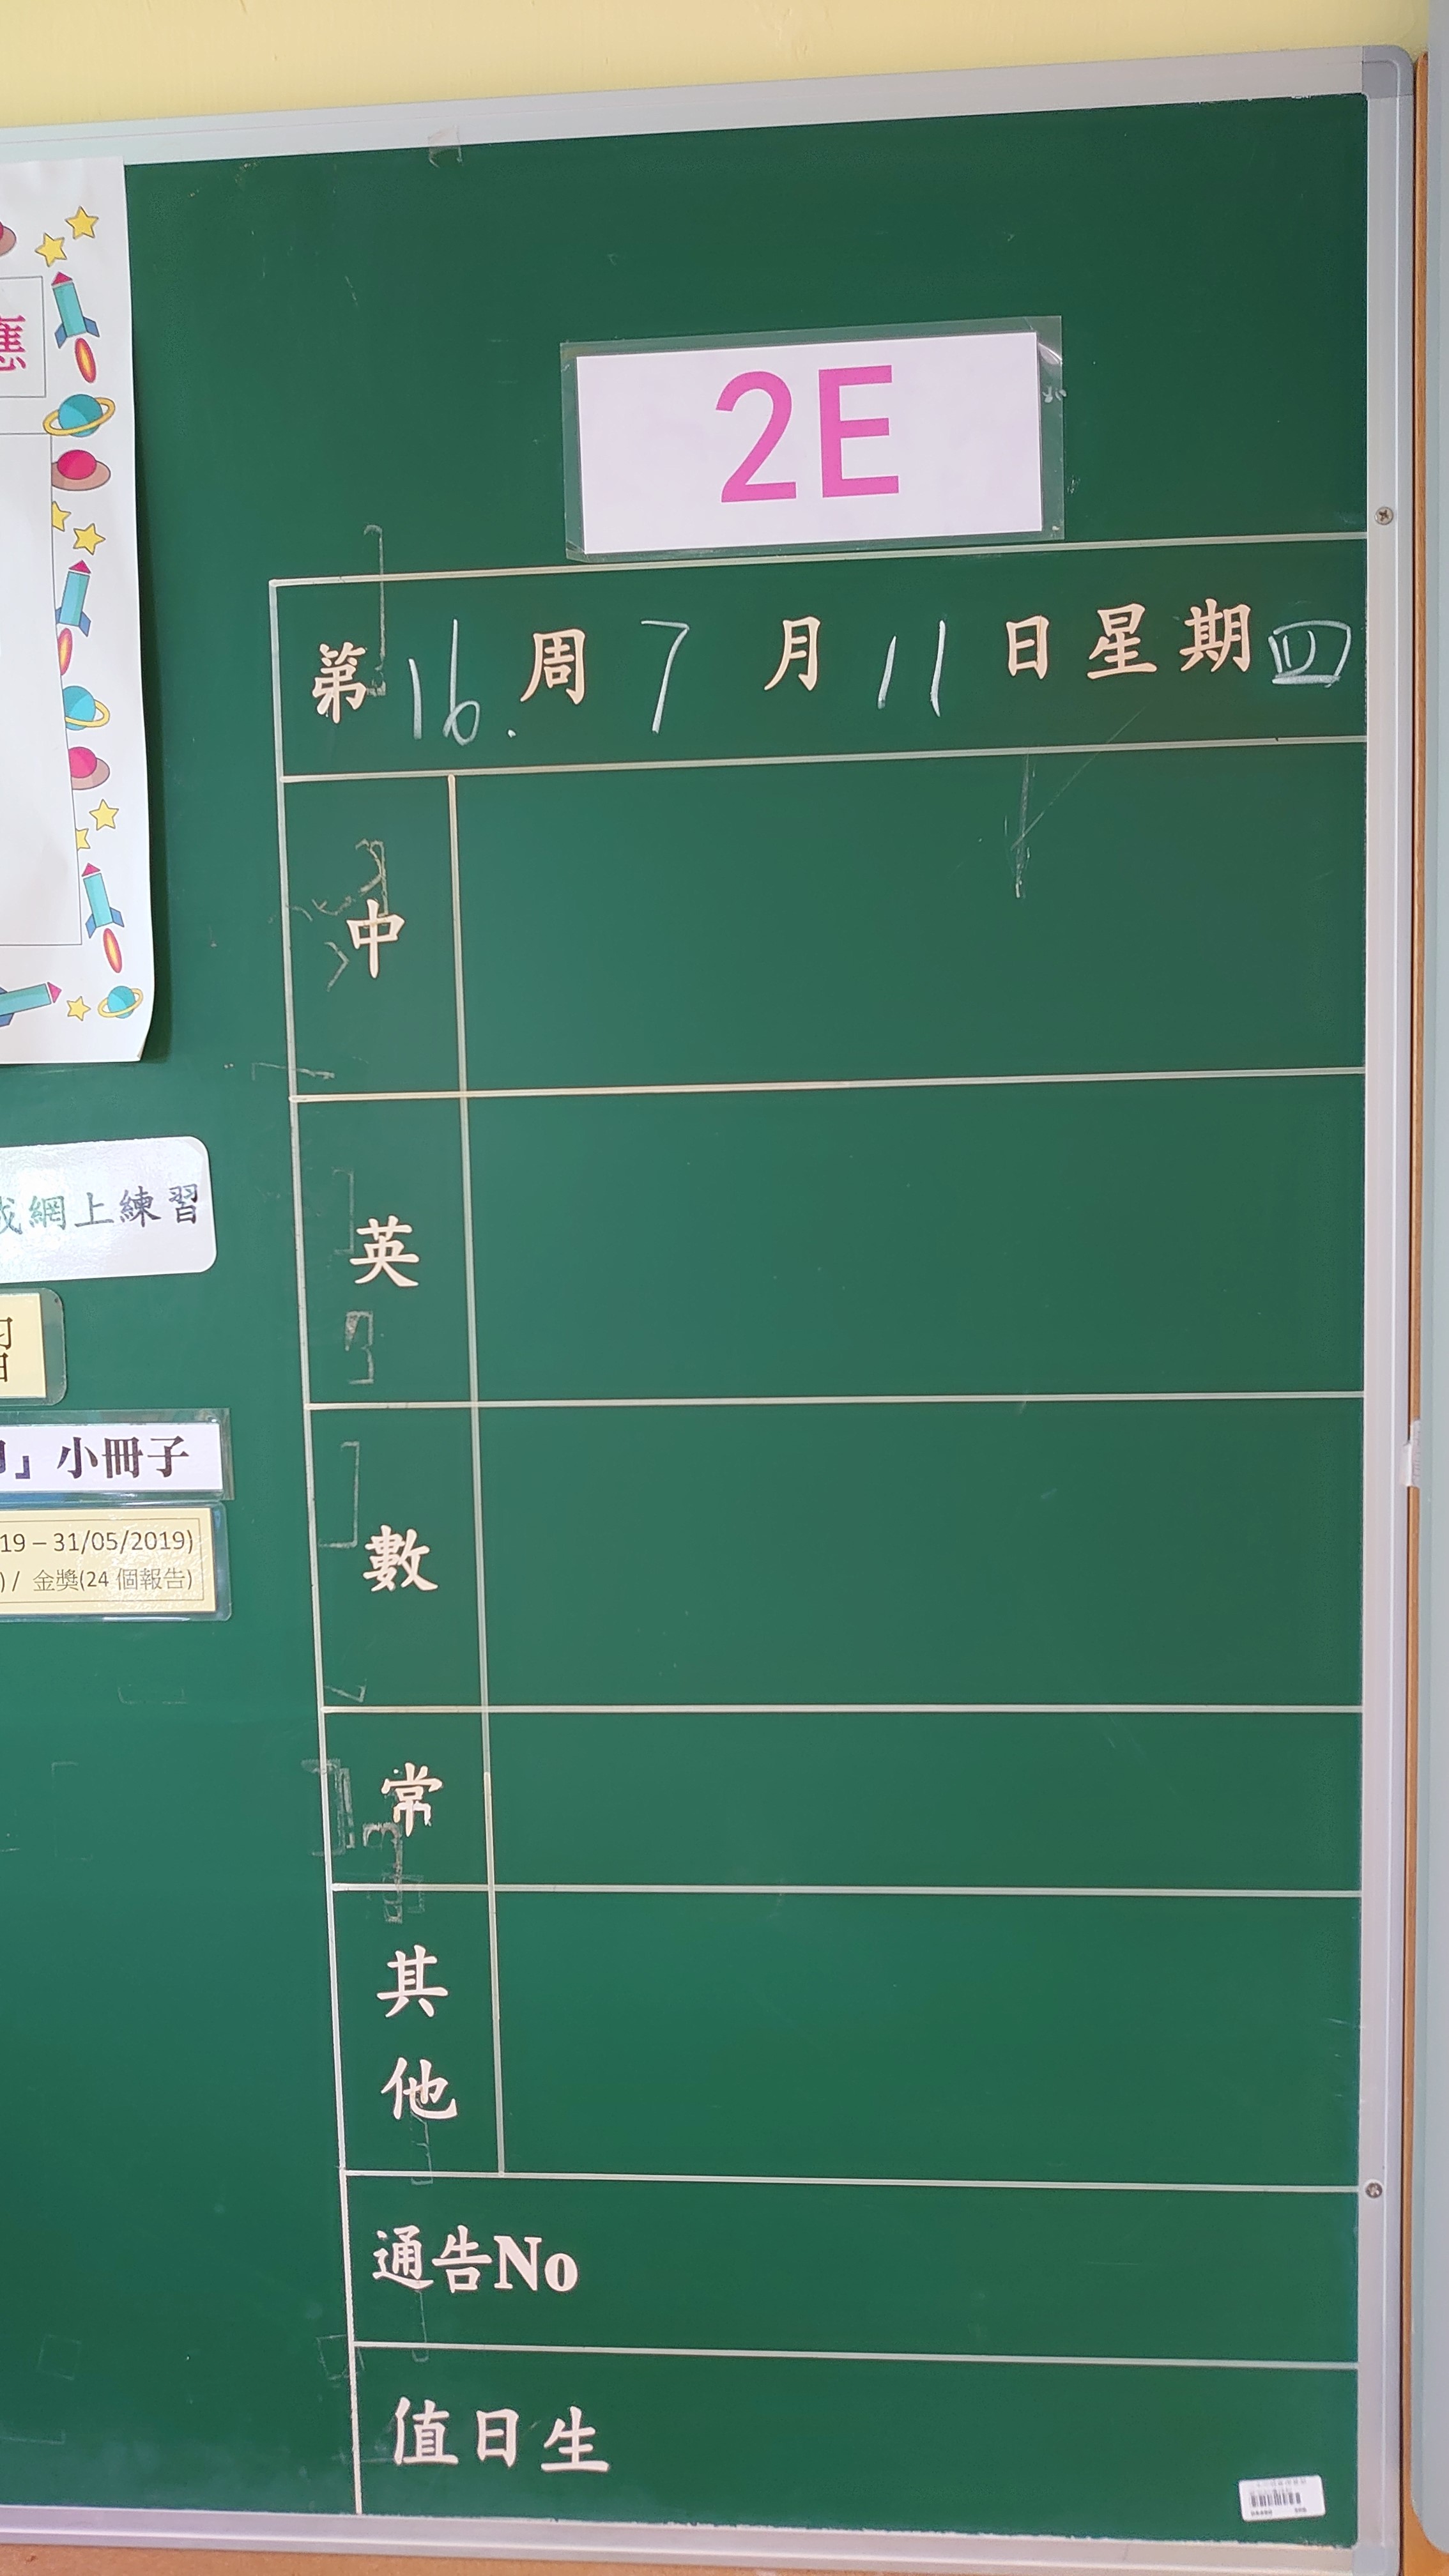 應
2E
第16.周7月11日星期四
中
英
網上練習
數
』小冊子
19 – 31/05/2019)
) / 金獎(24 個報告)
常
其
他
通告No
值日生